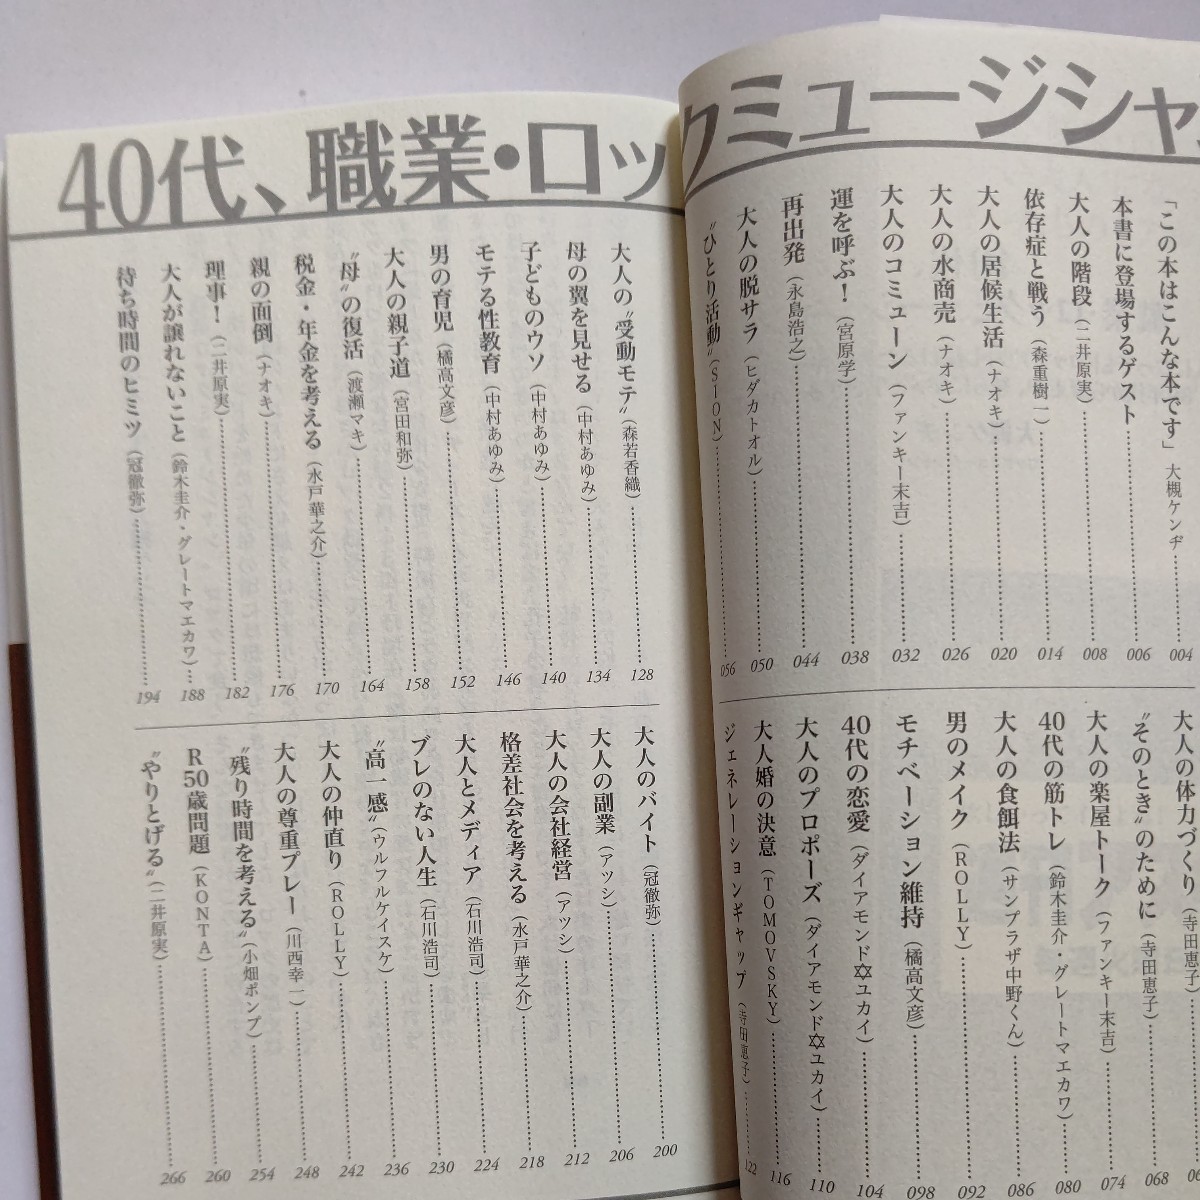 40代、職業・ロックミュージシャ
「この本はこんな本です」 大槻ケンヂ 004
本書に登場するゲスト 006
大人の階段（二井原実） 008
依存症と戦う（森重樹一） 014
大人の居候生活（ナオキ） 020
大人の水商売（ナオキ） 026
大人のコミューン（ファンキー末吉） 032
運を呼ぶ！（宮原学） 038
再出発（永島浩之） 044
大人の脱サラ（ヒダカトオル） 050
〝ひとり活動〟（SION） 056
大人の体力づくり（寺田恵子）
〝そのとき〟のために（寺田恵子） 068
大人の楽屋トーク（ファンキー末吉） 074
40代の筋トレ（鈴木圭介・グレートマエカワ） 080
大人の食餌法（サンプラザ中野くん） 086
男のメイク（ROLLY） 092
モチベーション維持（橘高文彦） 098
40代の恋愛（ダイアモンド✡ユカイ） 104
大人のプロポーズ（ダイアモンド✡ユカイ） 110
大人婚の決意（TOMOVSKY） 116
ジェネレーションギャップ（寺田恵子） 122
大人の〝受動モテ〟（森若香織） 128
母の翼を見せる（中村あゆみ） 134
子どものウソ（中村あゆみ） 140
モテる性教育（中村あゆみ） 146
男の育児（橘高文彦） 152
大人の親子道（宮田和弥） 158
〝母〟の復活（渡瀬マキ） 164
税金・年金を考える（水戸華之介） 170
親の面倒（ナオキ） 176
理事！（二井原実） 182
大人が譲れないこと（鈴木圭介・グレートマエカワ） 188
待ち時間のヒミツ（冠徹弥） 194
大人のバイト（冠徹弥） 200
大人の副業（アッシ） 206
大人の会社経営（アッシ） 212
格差社会を考える（水戸華之介） 218
大人とメディア（石川浩司） 224
ブレのない人生（石川浩司） 230
〝高一感〟（ウルフルケイスケ） 236
大人の仲直り（ROLLY） 242
大人の尊重プレー（川西幸一） 248
〝残り時間を考える〟（小畑ポンプ） 254
R50歳問題（KONTA） 260
〝やりとげる〟（二井原実） 266